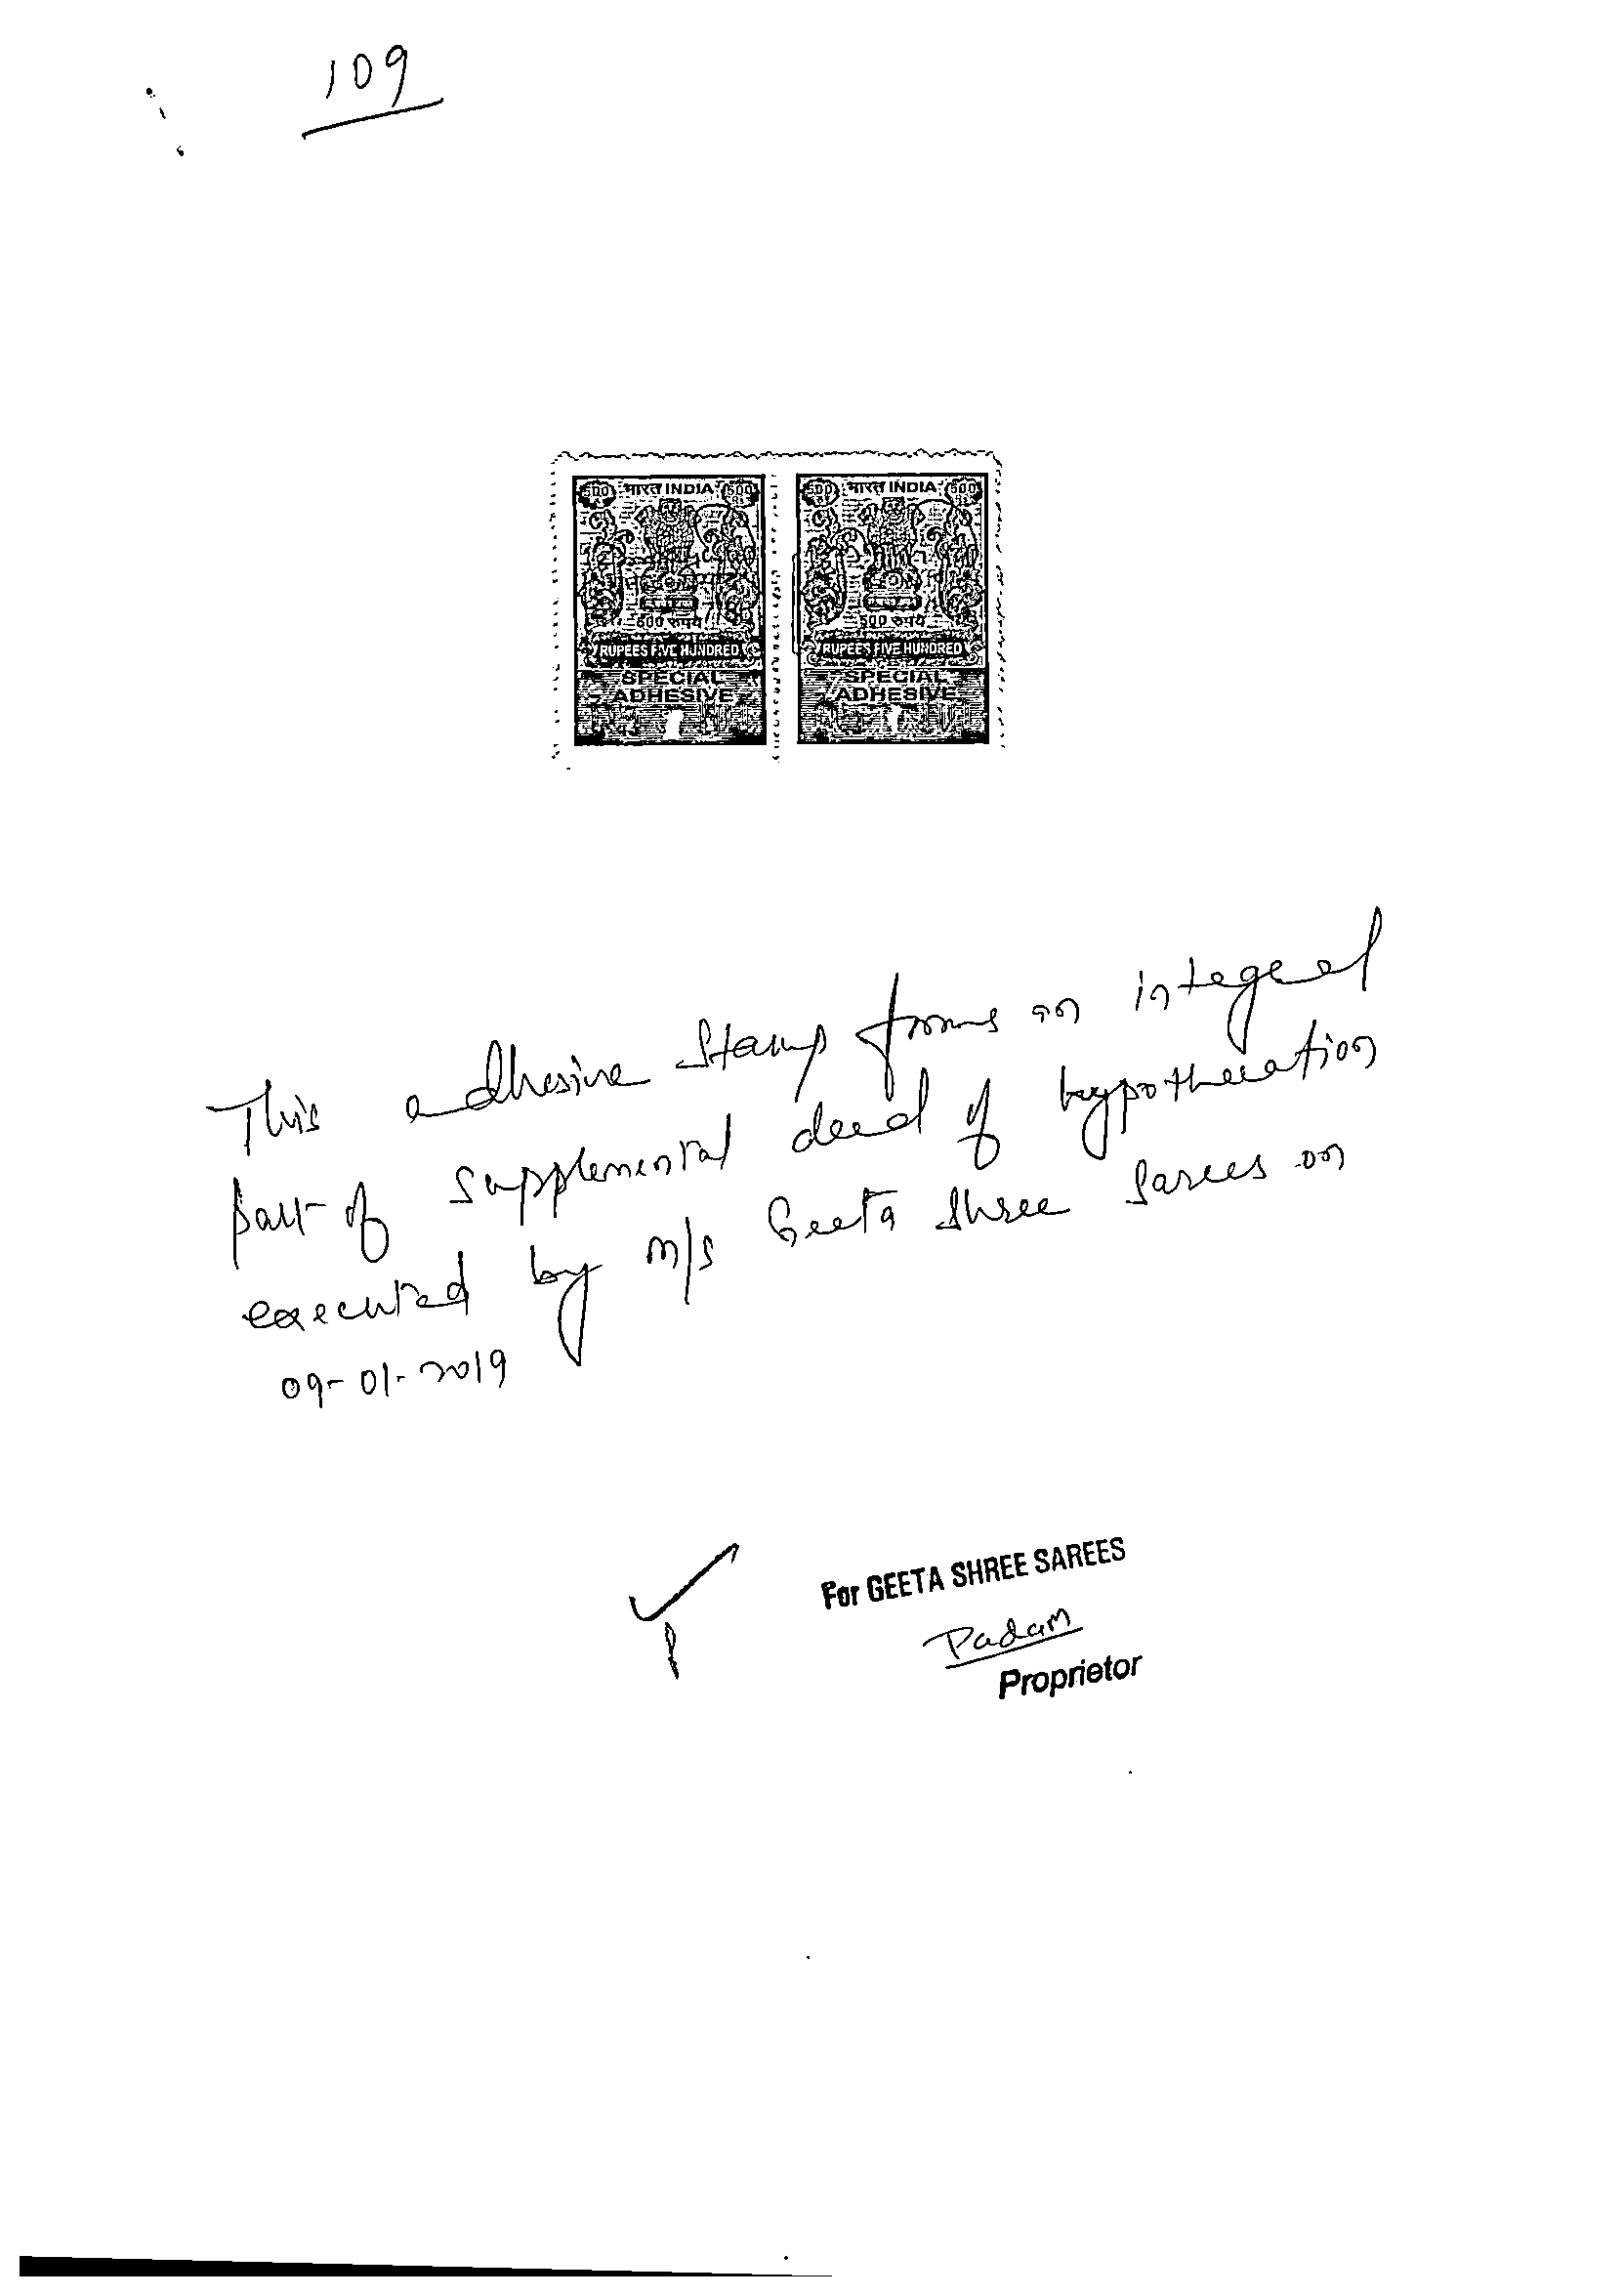 109
500 भारत INDIA 500
500 रुपये
RUPEES FIVE HUNDRED
SPECIAL
ADHESIVE
500 भारत INDIA 500
500 रुपये
RUPEES FIVE HUNDRED
SPECIAL
ADHESIVE
This adhesive stamp forms an integral
part of supplemental deed of hypothecation
executed by M/s Geeta Shree Sarees on
09-01-2019
For GEETA SHREE SAREES
Padam
Proprietor